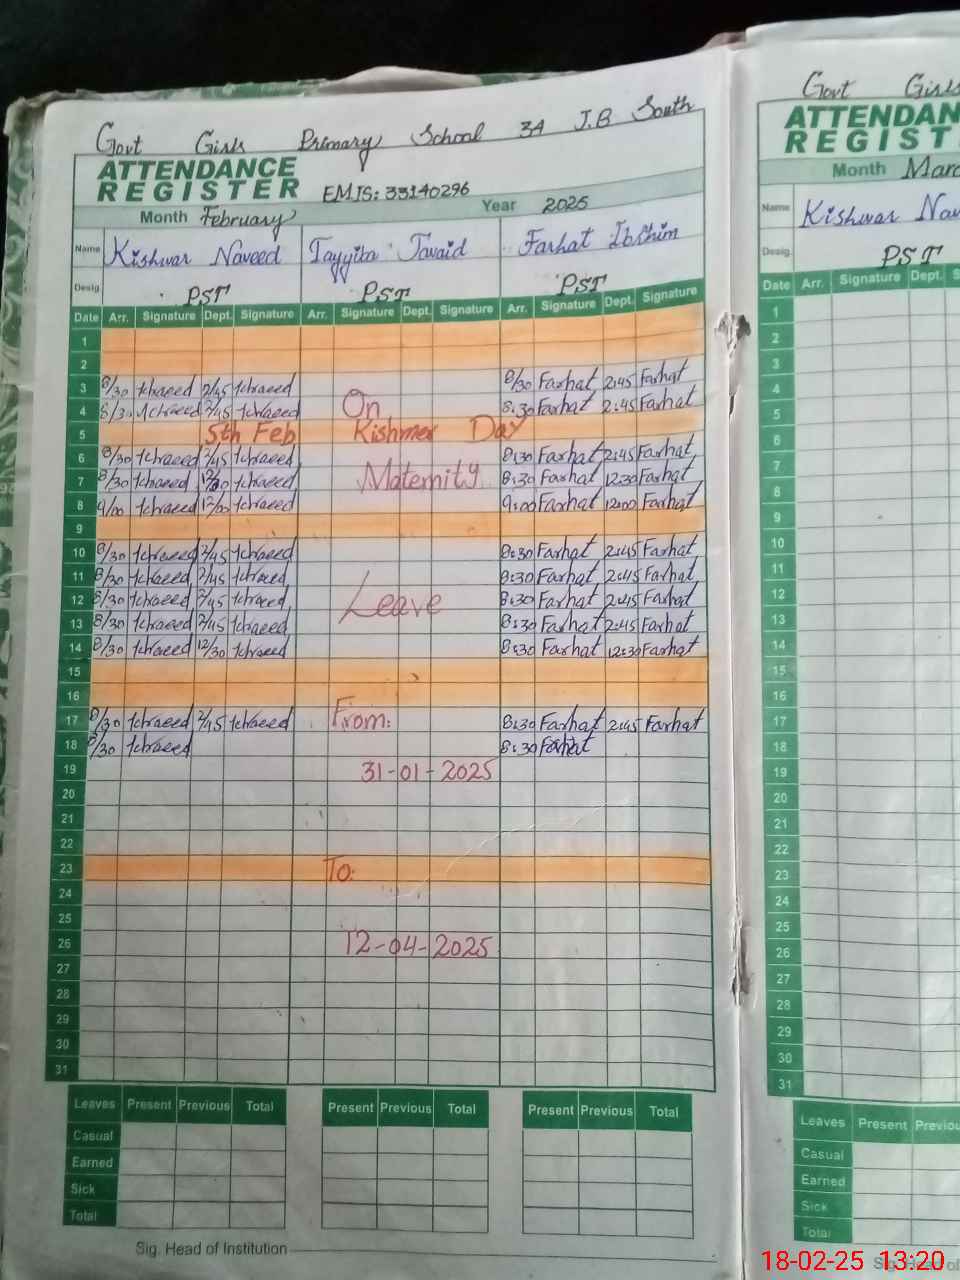 Govt Girls Primary School 34 J.B South
ATTENDANCE
REGISTER EMIS: 33140296
Month February Year 2025
Name Kishwar Naveed Tayyiba Javaid Farhat Ibrhim
Desig. PST PST PST
Date Arr. Signature Dept. Signature Arr. Signature Dept. Signature Arr. Signature Dept. Signature
1
2
3 8/30 2/45 8/30 Farhat 2:45 Farhat
4 8/30 2/45 On 8:30 Farhat 2:45 Farhat
5 5th Feb Kishmer Day
6 8/30 2/45 8:30 Farhat 2:45 Farhat
7 8/30 12/30 Maternity 8:30 Farhat 12:30 Farhat
8 9/00 12/00 9:00 Farhat 12:00 Farhat
9
10 8/30 2/45 8:30 Farhat 2:45 Farhat
11 8/30 2/45 8:30 Farhat 2:45 Farhat
12 8/30 2/45 Leave 8:30 Farhat 2:45 Farhat
13 8/30 2/45 8:30 Farhat 2:45 Farhat
14 8/30 12/30 8:30 Farhat 12:30 Farhat
15
16
17 8/30 2/45 From: 8:30 Farhat 2:45 Farhat
18 8/30 8:30 Farhat
19 31-01-2025
20
21
22
23 To:
24
25
26 12-04-2025
27
28
29
30
31
Leaves Present Previous Total Present Previous Total Present Previous Total
Casual
Earned
Sick
Total
Sig. Head of Institution
Govt Girls
ATTENDAN
REGIST
Month Marc
Name Kishwar Nav
Desig. PST
Date Arr. Signature Dept. S
1
2
3
4
5
6
7
8
9
10
11
12
13
14
15
16
17
18
19
20
21
22
23
24
25
26
27
28
29
30
31
Leaves Present Previou
Casual
Earned
Sick
Total
Sig. Head of
18-02-25 13:20